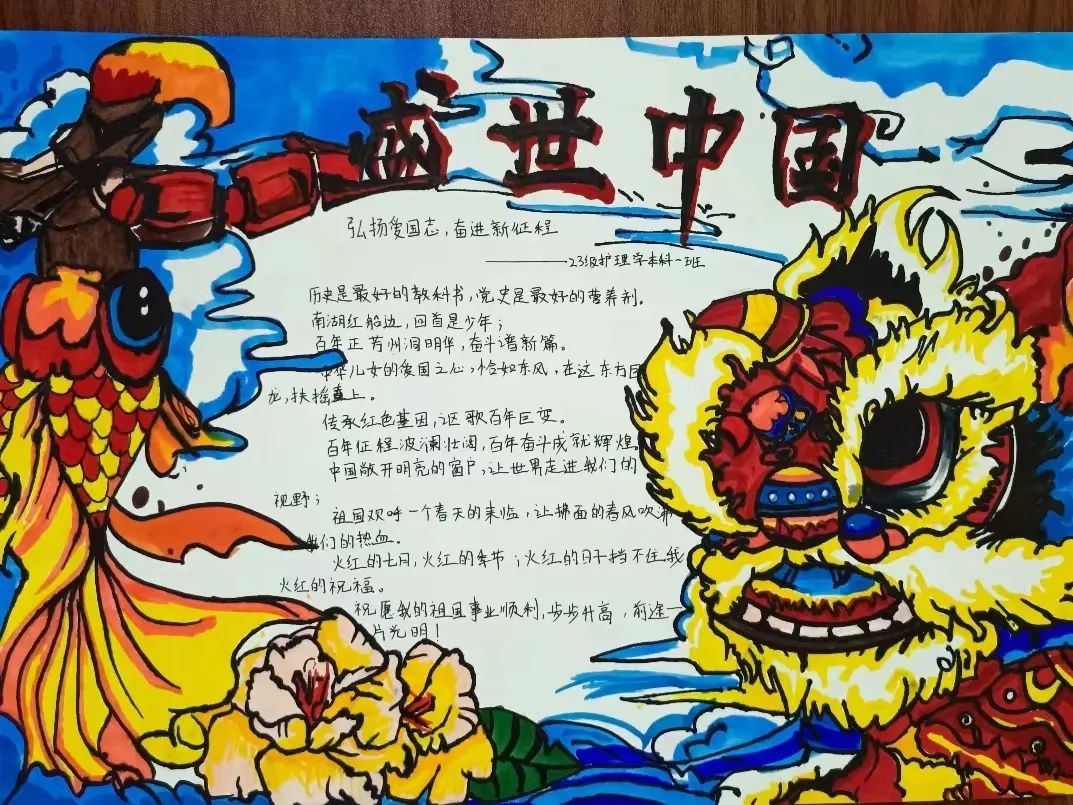 盛世中国
弘扬爱国志,奋进新征程
———23级护理学本科一班
历史是最好的教科书,党史是最好的营养剂。
南湖红船边,回首是少年;
百年正芳州泪明华,奋斗谱新篇。
中华儿女的爱国之心,恰如东风,在这东方巨
龙,扶摇直上。
传承红色基因,讴歌百年巨变。
百年征程波澜壮阔,百年奋斗成就辉煌。
中国敞开明亮的窗户,让世界走进我们的
视野;
祖国欢呼一个春天的来临,让拂面的春风吹沸
我们的热血。
火红的七月,火红的季节;火红的日子挡不住我
火红的祝福。
祝愿我的祖国事业顺利,步步升高,前途一
片光明!